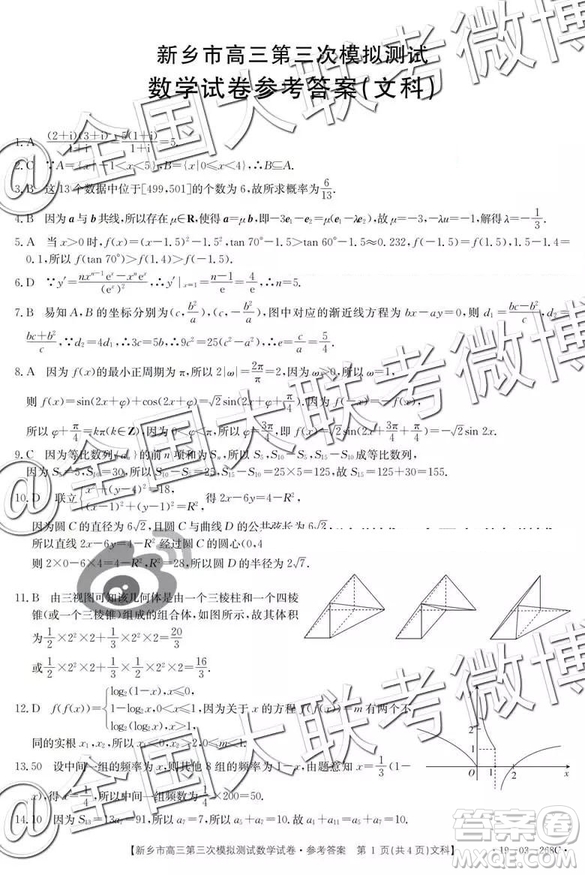 新乡市高三第三次模拟测试
数学试卷参考答案(文科)
1. A (2+i)(3+i)/(1+i)=5(1+i)/(1+i)=5.
2. C ∵A={x|-1<x<5},B={x|0≤x<4},∴B⊆A.
3. B 这13个数据中位于[499,501]的个数为6,故所求概率为6/13.
4. B 因为a与b共线,所以存在μ∈R,使得a=μb,即-3e₁-e₂=μ(e₁-λe₂),故μ=-3,-λμ=-1,解得λ=-1/3.
5. A 当x>0时,f(x)=(x-1.5)²-1.5²,tan 70°-1.5>tan 60°-1.5≈0.232,f(-1.5)=f(1.5),1.5-1.4=
0.1,所以f(tan 70°)>f(1.4)>f(-1.5).
6. D ∵y′=(nxⁿ⁻¹eˣ-xⁿeˣ)/(eˣ)²,∴y′|ₓ₌₁=(n-1)/e=4/e,∴n=5.
7. B 易知A,B的坐标分别为(c,b²/a),(c,-b²/a),图中对应的渐近线方程为bx-ay=0,则d₁=(bc-b²)/c,d₂=
(bc+b²)/c,∵d₂=4d₁,∴3c=5b,∴9c²=25(c²-a²),∴e=c/a=5/4.
8. A 因为f(x)的最小正周期为π,所以2|ω|=2π/π=2,因为ω>0,所以ω=1.
则f(x)=sin(2x+φ)+cos(2x+φ)=√2sin(2x+φ+π/4).因为f(-x)=-f(x),
所以φ+π/4=kπ(k∈Z),因为0<φ<π,所以φ=3π/4,f(x)=√2sin(2x+3π/4+π/4)=-√2sin 2x.
9. C 因为等比数列
因为S₅=5,S₁₀-S₅=25,S₁₅-S₁₀=25×5=125,故S₁₅=125+30=155.
10. D 联立 得2x-6y=4-R²,
因为圆C的直径为6√2,且圆C与曲线D的公共弦长为6√2,
所以直线2x-6y=4-R²经过圆C的圆心(0,4
则2×0-6×4=4-R²,R²=28,所以圆D的半径为2√7.
11. B 由三视图可知该几何体是由一个三棱柱和一个四棱
锥(或一个三棱锥)组成的组合体,如图所示,故体积为
1/2×2×2²+1/3×2×2²=20/3
或1/2×2×2²+1/3×1/2×2×2²=16/3.
12. D f(f(x))={log₂(1-x),x≤0, 因为关于x的方程f(f(x))=m有两个不
同的实根x₁,x₂,所以
13. 50 设中间一组的频率为x,则其他8组的频率为1-x,由题意知x=1/3(1-
x),得x=1/4,所以中间一组频数为1/4×200=50.
14. 10 因为S₁₃=13a₇=91,所以a₇=7,
2
1
O 1 2 x
【新乡市高三第三次模拟测试数学试卷·参考答案 第1页(共4页)文科】
·19-03-268C·
@全国大联考微博
@全国大联考微博
@全国大联考微博
答案圈